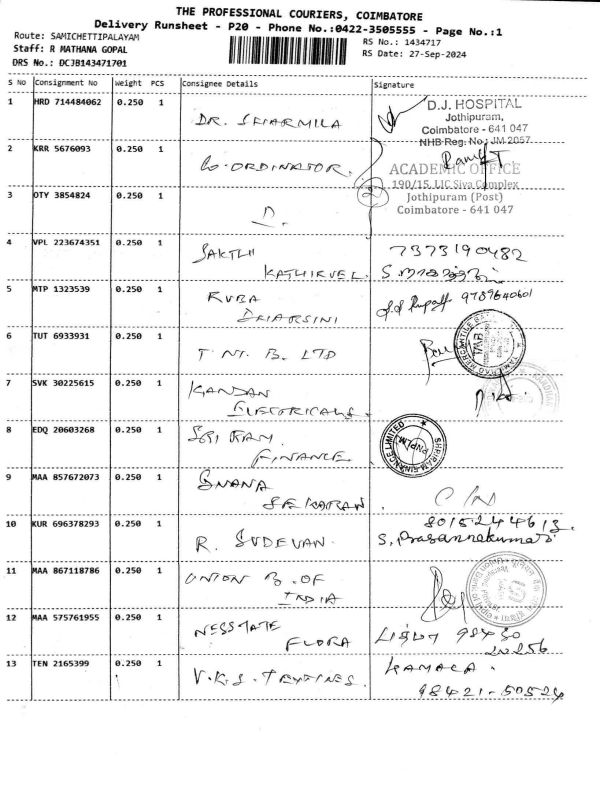 THE PROFESSIONAL COURIERS, COIMBATORE
Delivery Runsheet - P20 - Phone No.:0422-3505555 - Page No.:1
Route: SAMICHETTIPALAYAM
RS No.: 1434717
Staff: R MATHANA GOPAL
RS Date: 27-Sep-2024
DRS No.: DCJB143471701
S No Consignment No Weight PCS Consignee Details Signature
1 HRD 714484062 0.250 1
DR. SHARMILA
D.J. HOSPITAL
Jothipuram,
Coimbatore - 641 047
NHB Reg. No: JM 2057
2 KRR 5676093 0.250 1
CO-ORDINATOR.
ACADEMIC OFFICE
190/15, LIC Siva Complex
3 OTY 3854824 0.250 1
D.
2
Jothipuram (Post)
Coimbatore - 641 047
4 VPL 223674351 0.250 1
SAKTHI
KATHIRVEL.
7373190482
5 MTP 1323539 0.250 1
RUBA
DHARSINI
9789640601
6 TUT 6933931 0.250 1
T. M. B. LTD
TMB
7 SVK 30225615 0.250 1
KANDAN
ELECTRICALS.
8 EDQ 20603268 0.250 1
SRI RAM.
FINANCE.
SHRIRAM FINANCE LIMITED
PNPLM
9 MAA 857672073 0.250 1
GNANA
SEKARAN.
C/N
8015244613.
10 KUR 696378293 0.250 1
R. SUDEVAN.
S. Prasannakumari
11 MAA 867118786 0.250 1
UNION B. OF
INDIA
12 MAA 575761955 0.250 1
NESSTATE
FLORA
98430
20256
13 TEN 2165399 0.250 1
V.K.S. TEXTINES.
KAMALA.
98421-50524